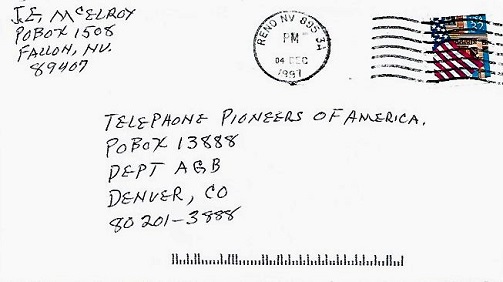 J.E. McELROY
PO BOX 1508
FALLON, NV.
89407
RENO NV 895 34
PM
04 DEC
1997
32
TELEPHONE PIONEERS OF AMERICA.
PO BOX 13888
DEPT AGB
DENVER, CO
80201-3888